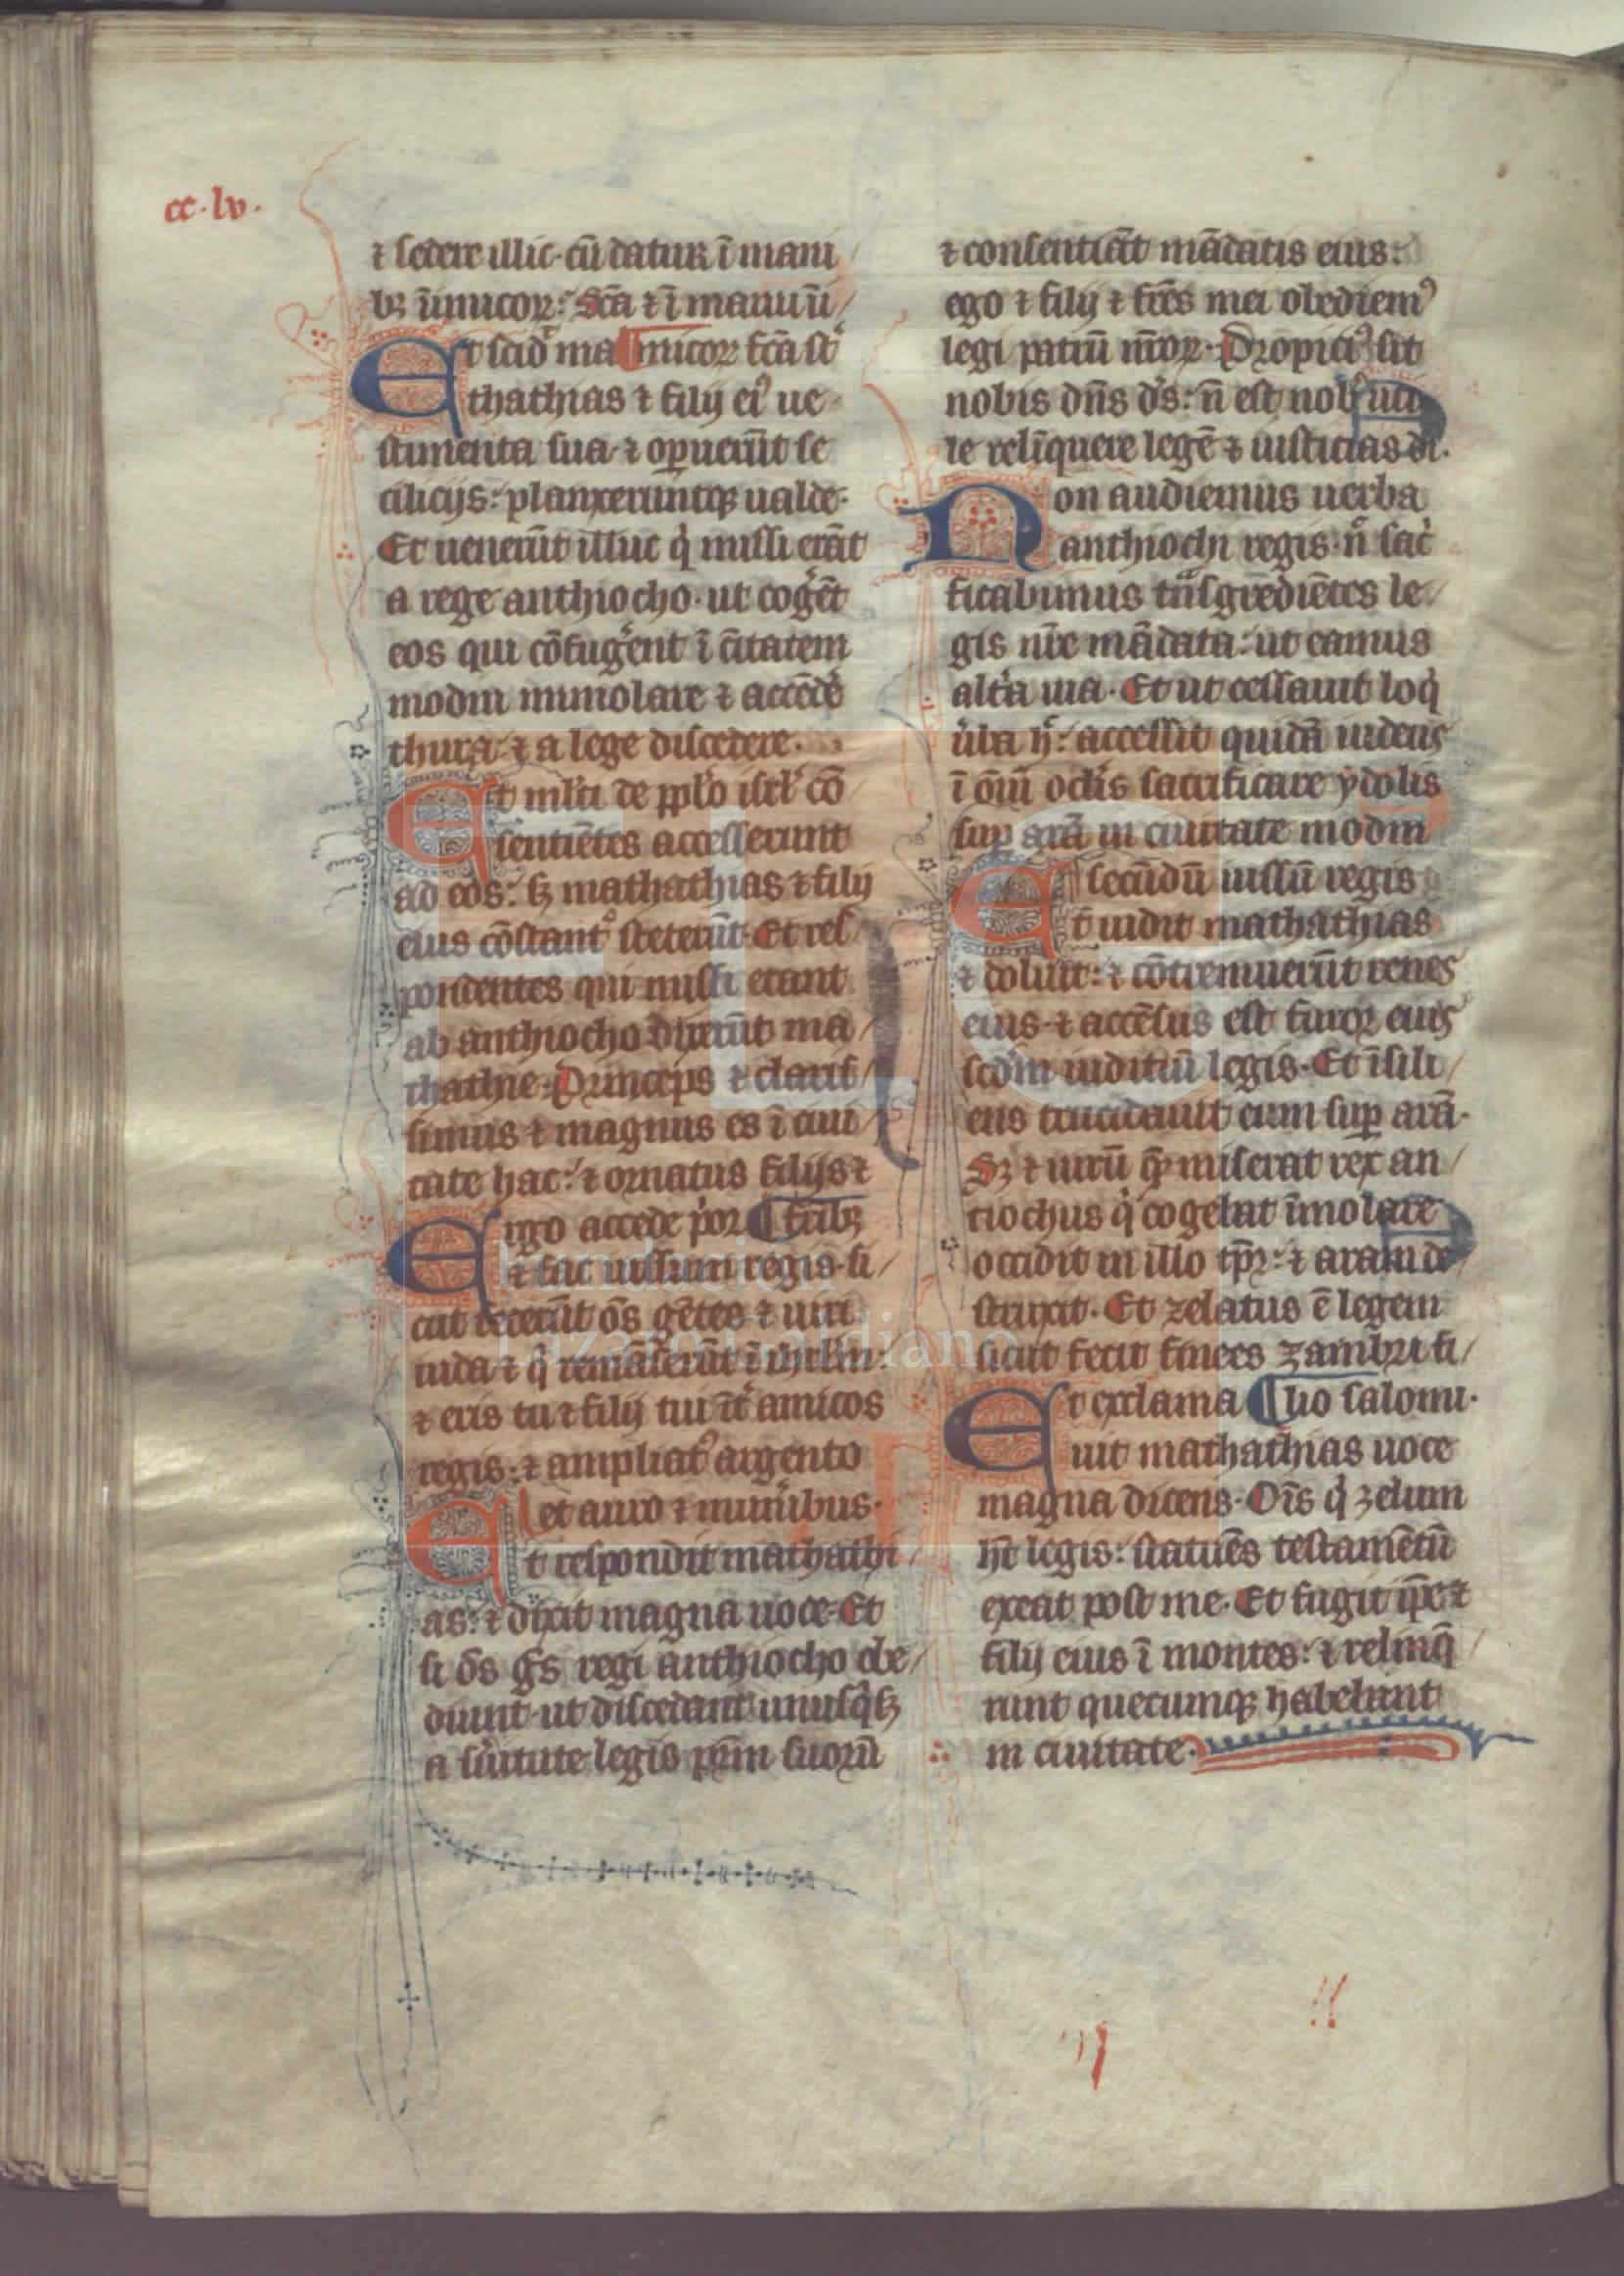 cc·lv·
⁊ sedere illic· cū datur ī mani
bꝫ īimicoꝝ: Sc̄a ⁊ ī manu īi
Et scid͛ ma ¶ micoꝝ fc̄a st͛
thathias ⁊ filij ei᾽ ue
stimenta sua· ⁊ oꝑuerūt se
cilicijs: planxeruntqꝫ ualde·
Et uenerūt illuc q̇ missi erāt
a rege anthiocho· ut cog͛ēt
eos qui cōfug͛ent ī ciuitatem
modin immolare ⁊ accēde͛
thura· ⁊ a lege discedere·
Et ml̄ti de pp̄lo isrl̄ cō
sentiētes accesserunt
ad eos: sꝫ mathathias ⁊ filij
eius cōstant᾽ steterūt· Et res
pondentes qui missi erant
ab anthiocho dixerūt ma
thathie· Princeps ⁊ claris
simus ⁊ magnus es ī ciui
tate hac: ⁊ ornatus filijs ⁊
Ergo accede p͛or ¶ fr̄ibꝫ
⁊ fac iussum regis· si
cut fecerūt ōs gētes ⁊ uiri
iuda ⁊ q̇ remāserūt ī ihrl̄m:
⁊ eris tu ⁊ filij tui īt͛ amicos
regis: ⁊ ampliat᾽ argento
et auro ⁊ mun͛ibus·
Et respondit mathathi
as: ⁊ dixit magna uoce· Et
si ōs ḡs regi anthiocho obe
diunt· ut discedant unusq̇sꝫ
a s͛uitute legis pr̄m suorū
⁊ consentiāt mādatis eius:
ego ⁊ filij ⁊ fr̄es mei obediem᾽
legi patrū nr̄oꝝ· Propici᾽ sit
nobis dn̄s d̄s: n̄ est nob᾽ uti
le relīquere legē ⁊ iusticias di·
Non audiemus uerba
anthiochi regis· n̄ sac͛
ficabimus tn̄sgrediētes le
gis nr̄e mādata: ut eamus
alt͛a uia· Et ut cessauit loq̇
u͛ba h̄: accessit quidā iudeus
ī ōiū ocl̄is sacrificare ydolis
suꝑ arā in ciuitate modin
secūdū iussū regis
Et uidit mathathias
⁊ doluit: ⁊ cōtremuerūt renes
eius· ⁊ accēsus est furor eius
scdm̄ iuditiū legis· Et īsili
ens trucidauit eum suꝑ arā·
Sꝫ ⁊ uirū qē miserat rex an
tiochus q̇ cogebat īmolare
occidit in illo tp̄r: ⁊ aram de
struxit· Et zelatus ē legem
sicut fecit finees zambri fi
Et exclama ¶ lio salomi·
uit mathathias uoce
magna dicens· Oīs q̇ zelum
ht̄ legis: statuēs testamētū
exeat post me· Et fugit ip̄e ⁊
filij eius ī montes: ⁊ relinq̄
runt quecumqꝫ habebant
in ciuitate·